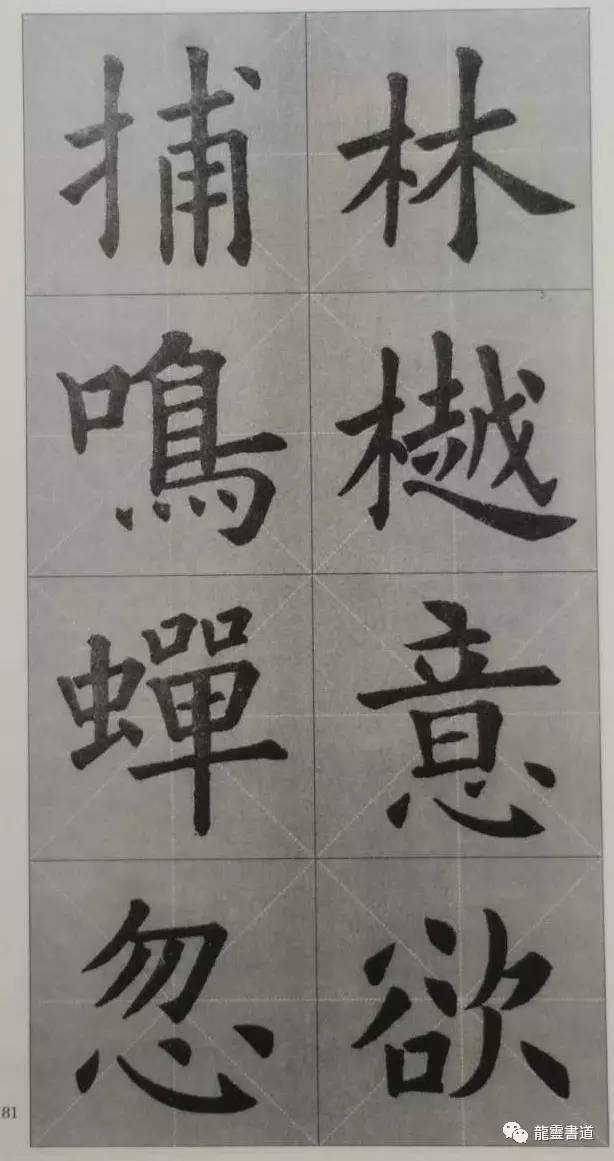 林樾意欲
捕鳴蟬忽
81
龍靈書道